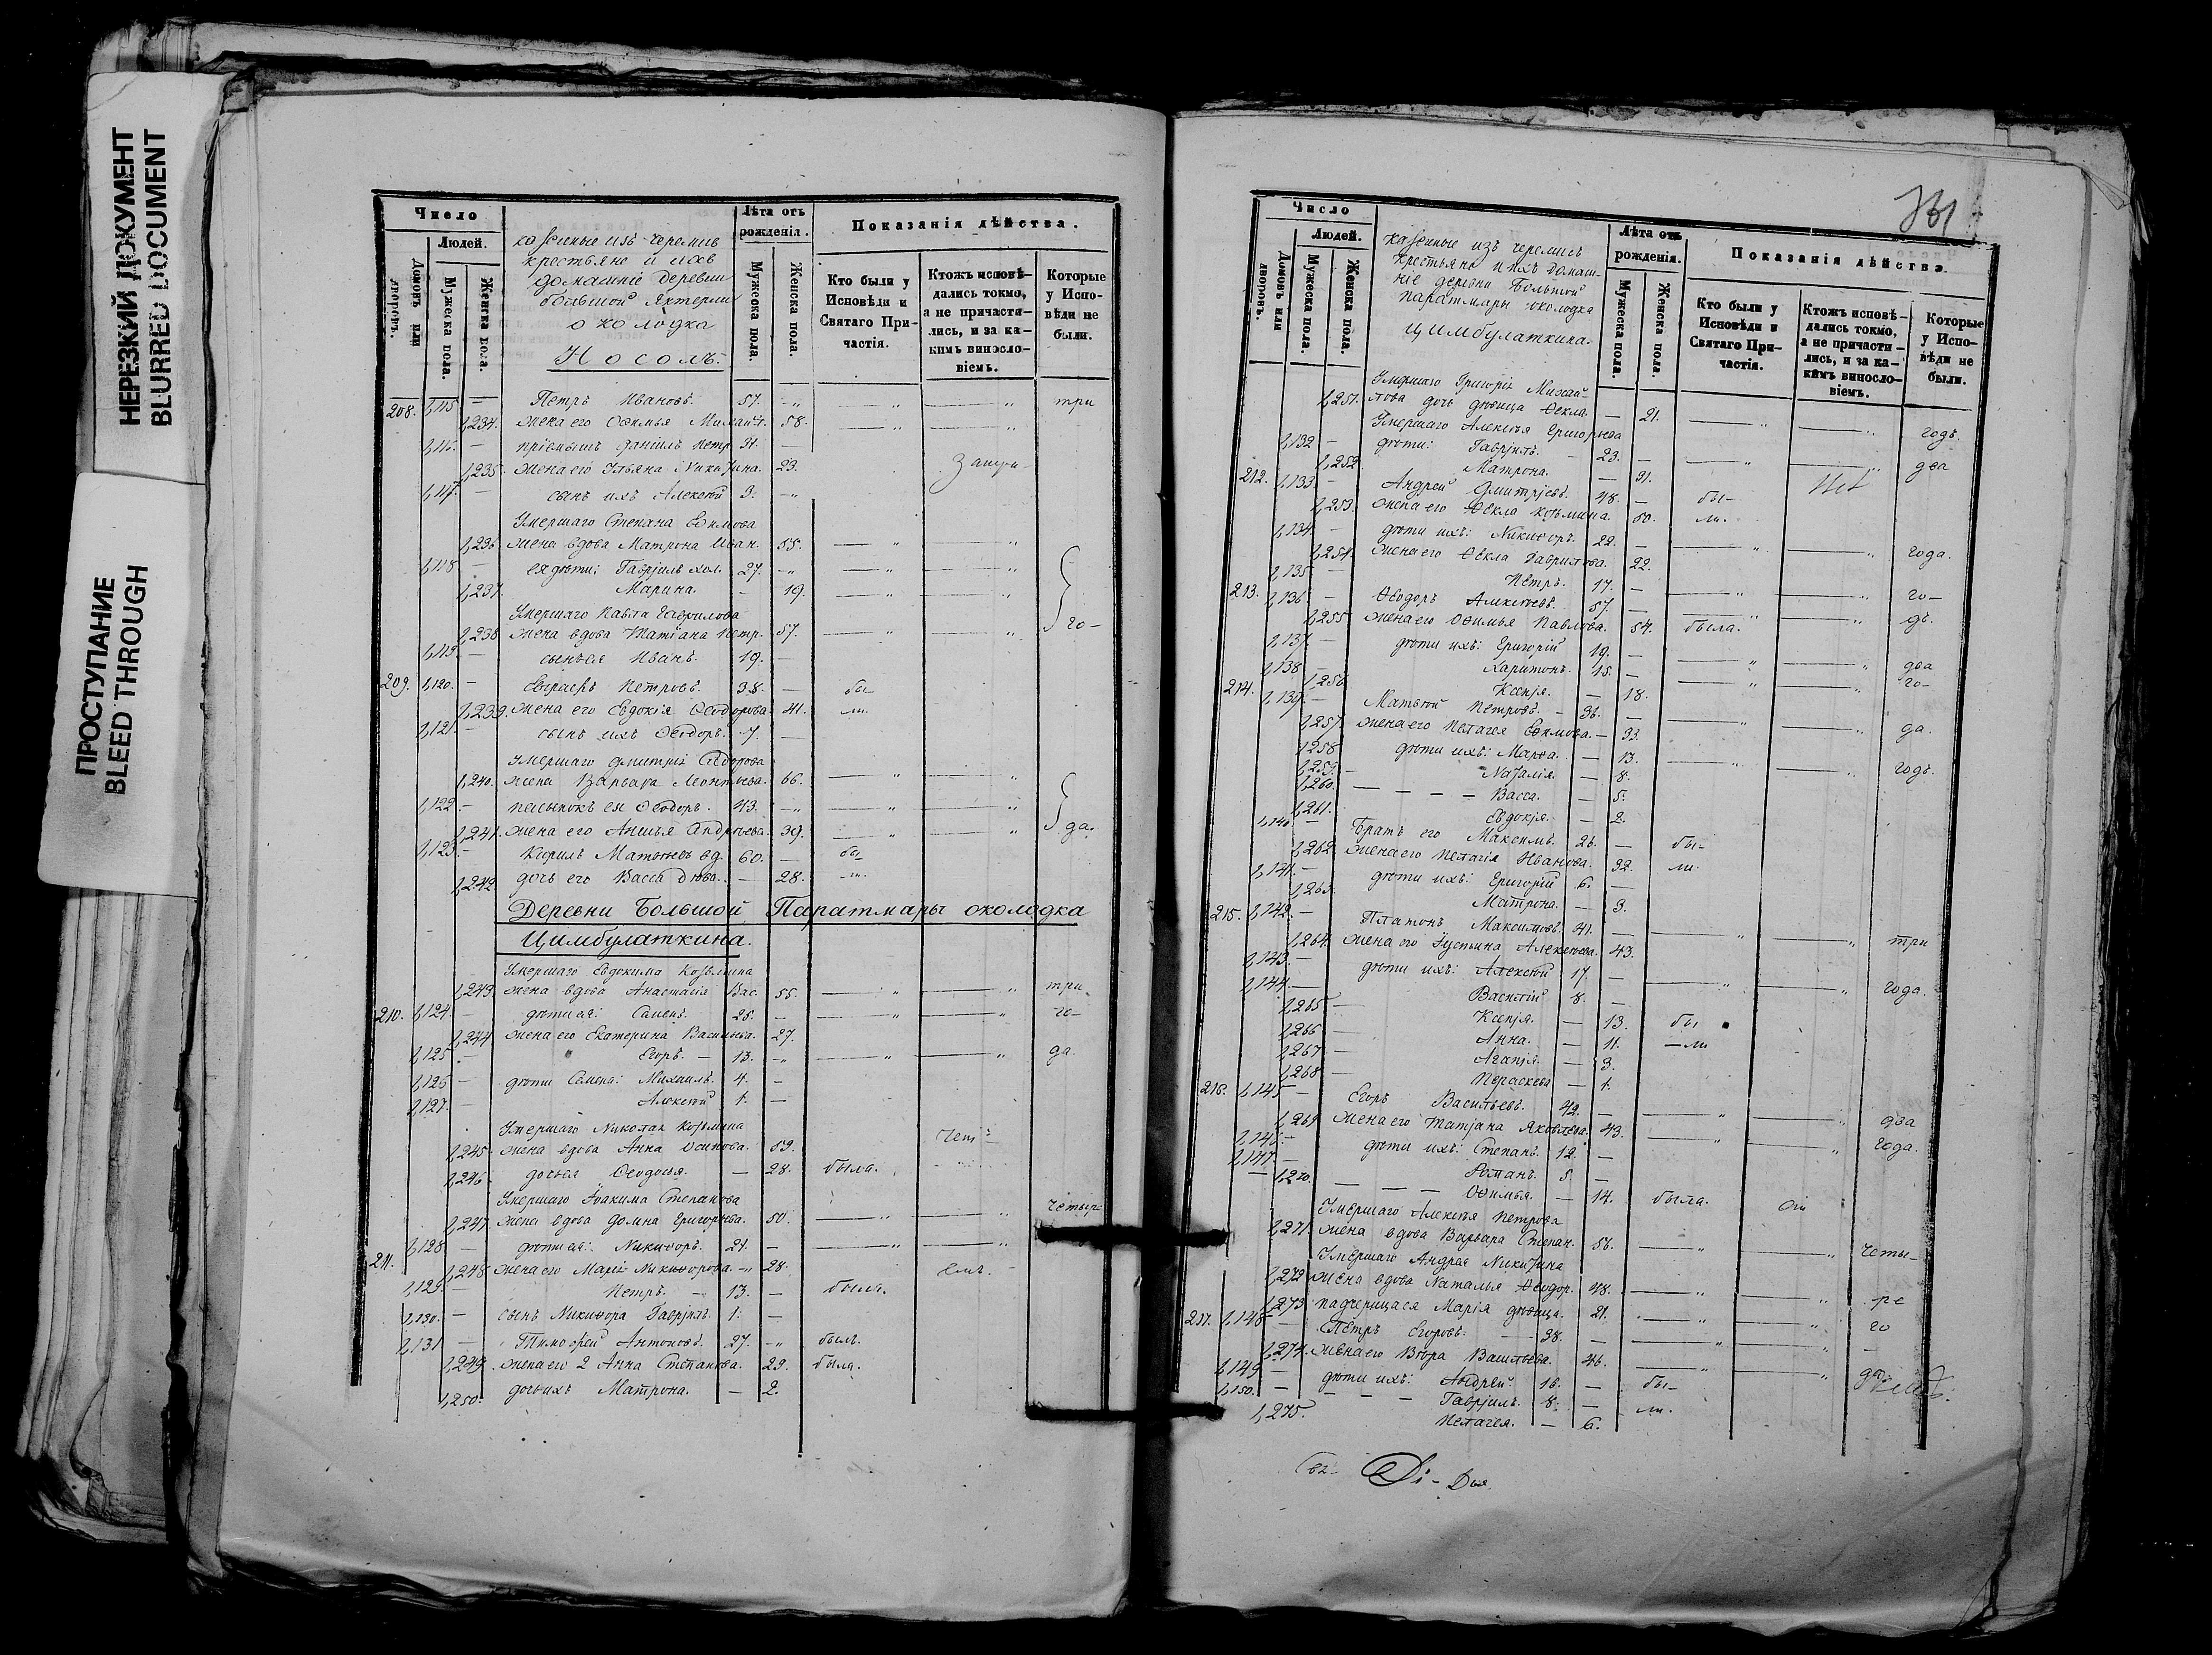 НЕРЕЗКИЙ ДОКУМЕНТ
BLURRED DOCUMENT
ПРОСТУПАНИЕ
BLEED THROUGH
Число
Людей.
Домовъ или дворовъ.
Мужеска пола.
Женска пола.
казенные изъ черемисъ
крестьяне и ихъ
домашніе деревни
большой Яктерли
околодка
Носолъ.
Лѣта отъ рожденія.
Мужеска пола.
Женска пола.
Показанія дѣйства.
Кто были у Исповѣди и Святаго Причастія.
Ктожъ исповѣдались токмо, а не причастились, и за какимъ винословіемъ.
Которые у Исповѣди не были.
208. 1,115 — Петръ Ивановъ. 57. — " — " — " три
1,234. жена его Офимья Михайл. 58. — " — "
1,116. — пріемышъ Даніилъ Петр. 31. —
1,235. жена его Ульяна Никитина. 23.
1,117. — сынъ ихъ Алексѣй 3. — "
Умершаго Степана Ефимова
1,236 жена вдова Матрона Иван. 55. — " — "
1,118 — ея дѣти: Гавріилъ хол. 27. — " — " — "
1,237. Марина. — 19. — " — "
Умершаго Павла Гаврилова
1,238 жена вдова Татіана Петр. 57. — " — " го-
1,119. — сынъ ея Иванъ. 19. —
209. 1,120. — Петровъ. 38. — бы-
1,239. жена его Евдокія Ѳеодорова. 41. ли.
1,121. — сынъ ихъ Ѳеодоръ. 7. —
Умершаго Дмитрія Ѳедорова
1,240. жена Варвара Леонтьева. 66. — " — "
1,122. — пасынокъ ея Ѳеодоръ. 43. — " — " — "
1,241. жена его Анисья Андреева. 39. — " — " да.
1,123. — Кирилъ Матвѣевъ вд. 60. — бы-
1,242 дочь его Васса дѣва. — 28. — ли.
Деревни Большой Паратмары околодка
Цимбулаткина.
Умершаго Евдокима Козьмина
1,243. жена вдова Анастасія Вас. 55. — " — " три
210. 1,124. — дѣти ея: Семенъ. 25. — — " — " го-
1,244 жена его Екатерина Васильева. 27.
1,125 — Егоръ. — 13. — " — " — " да.
1,126 — дѣти Семена: Михаилъ. 4. —
1,127. — Алексѣй 1. —
Умершаго Николая Козьмина
1,245. жена вдова Анна Осипова. 59.
1,246 дочь ея Ѳеодосья. — 28. была.
Умершаго Іоакима Степанова
1,247. жена вдова Домна Григорьева. 50. — " — " четыре
211. 1,128 — дѣти ея: Никифоръ. 21. — — " — "
1,248 жена его Марія Никифорова. — " 28.
1,129. — Петръ. — 13. — былъ.
1,130. — сынъ Никифора Гавріилъ. 1. —
1,131 — Тимофей Антоновъ. 27. — " былъ.
1,249. жена его 2 Анна Степанова. 29. была.
1,250. дочь ихъ Матрона. — 2.
331
Число
Людей.
Домовъ или дворовъ.
Мужеска пола.
Женска пола.
казенные изъ черемисъ
крестьяне и ихъ домаш-
ніе дерени Большой
Паратмары околодка
Цимбулаткина.
Лѣта отъ рожденія.
Мужеска пола.
Женска пола.
Показанія дѣйства.
Кто были у Исповѣди и Святаго Причастія.
Ктожъ исповѣдались токмо, а не причастились, и за какимъ винословіемъ.
Которые у Исповѣди не были.
Умершаго Григорія Михай-
1,251. лова дочь дѣвица Ѳекла. — 21. — " — " годъ.
Умершаго Алексѣя Григорьева
1,132 — дѣти: Гавріилъ. — 23. — — " — " два
1,252. Матрона. — 31.
212. 1,133 — Андрей Дмитріевъ. 48. — бы-
1,253. жена его Ѳекла Козьмина. 50. ли.
1,134. — дѣти ихъ: Никифоръ. 22. — — " — " года.
1,254. жена его Ѳекла Гаврилова. 22.
1,135. Петръ. 17. — — " — " го-
213. 1,136. — Ѳеодоръ Алексѣевъ. 57. — — " — " дъ.
1,255 жена его Офимья Павлова. 54. была.
1,137. — дѣти ихъ: Григорій 19. — — " — " два
1,138 — Харитонъ. 15. — — " — " го-
1,256 Ксенія. — 18.
214. 1,139. — Матвѣй Петровъ. — 36. — — " — " да.
1,257. жена его Пелагея Ефимова. — 33.
1,258 дѣти ихъ: Марфа. — 13. — " — " годъ.
1,259. — Наталія. — 8.
1,260. — — — — Васса. — 5.
1,261. Евдокія. — 2.
1,140. — Братъ его Максимъ. 26. — бы-
1,262. жена его Пелагія Иванова. 32. ли.
1,141. — дѣти ихъ: Григорій 6. —
1,263. Матрона. — 3.
215. 1,142. — Платонъ Максимовъ. 41. — — " — " три
1,264. жена его Устьина Алексѣева. 43.
1,143. — дѣти ихъ: Алексѣй 17. — — " — " года.
1,144. — Василій 8. —
1,265 — Ксенія. — 13. бы
1,266 — Анна. — 11. — ли
1,267 — Агапія. — 3.
1,268 — Пераскева — 1.
216. 1,145 — Егоръ Васильевъ. 42. — — " — " два
1,269 жена его Татіана Яковлева. 43. — " — " года.
1,146. — дѣти ихъ: Степанъ. 12. —
1,147. — Романъ. 5. —
1,270. — — — Офимья. — 14. была.
Умершаго Алексѣя Петрова
1,271. жена вдова Варвара Степан. 56. — " — " четы-
Умершаго Андрея Никитина
1,272 жена вдова Наталья Ѳеодор. 48. — " — " ре
1,273 падчерица ея Марія дѣвица. 21. — " — " го
217. 1,148 — Петръ Егоровъ. — 38. — — " — " —
1,274. жена его Васильева. 46. — " — " да.
1,149 — дѣти ихъ: Андрей. 16. — бы-
1,150. — — — — Гавріилъ. 8. — ли.
1,275. Пелагея. — 6.